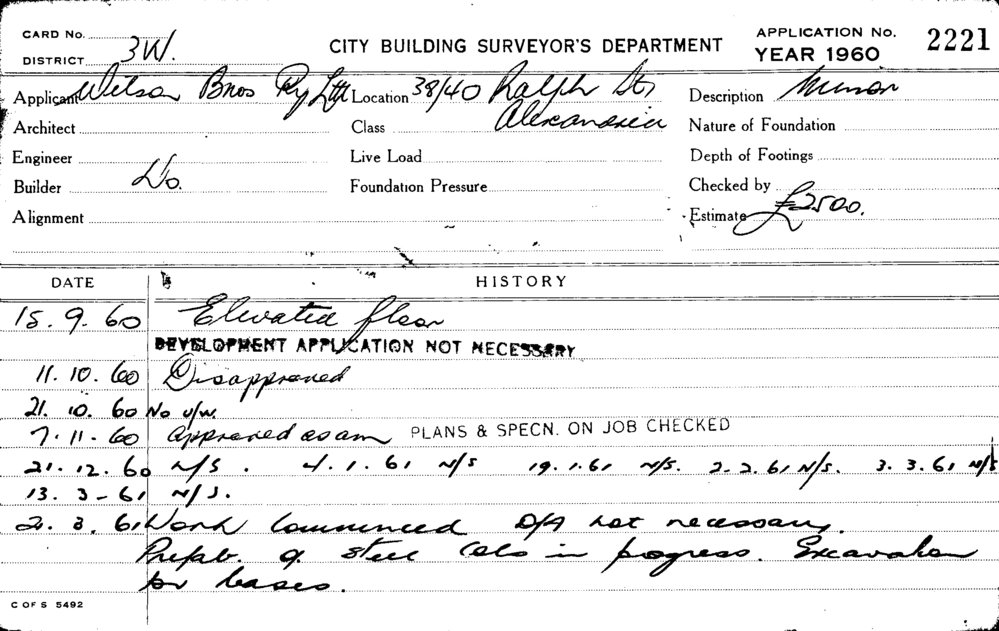 CARD No.
DISTRICT 3W.
CITY BUILDING SURVEYOR'S DEPARTMENT
APPLICATION No.
YEAR 1960
2221
Applicant Wilson Bros Pty Ltd Location 38/40 Ralph St, Description Minor
Alexandria
Architect Class Nature of Foundation
Engineer Live Load Depth of Footings
Builder Do. Foundation Pressure Checked by
Alignment Estimate £2500.
DATE HISTORY
15. 9. 60 Elevated floor
DEVELOPMENT APPLICATION NOT NECESSARY
11. 10. 60 Disapproved
21. 10. 60 No u/w.
7. 11 - 60 Approved as am PLANS & SPECN. ON JOB CHECKED
21. 12. 60 N/S. 4. 1. 61 N/S 19. 1. 61 N/S. 2. 2. 61 N/S. 3. 3. 61 N/S
13. 3 - 61 N/S.
21. 3. 61 Work Commenced D/A not necessary.
Prefab. of steel cols in progress. Excavation
for bases.
C OF S 5492